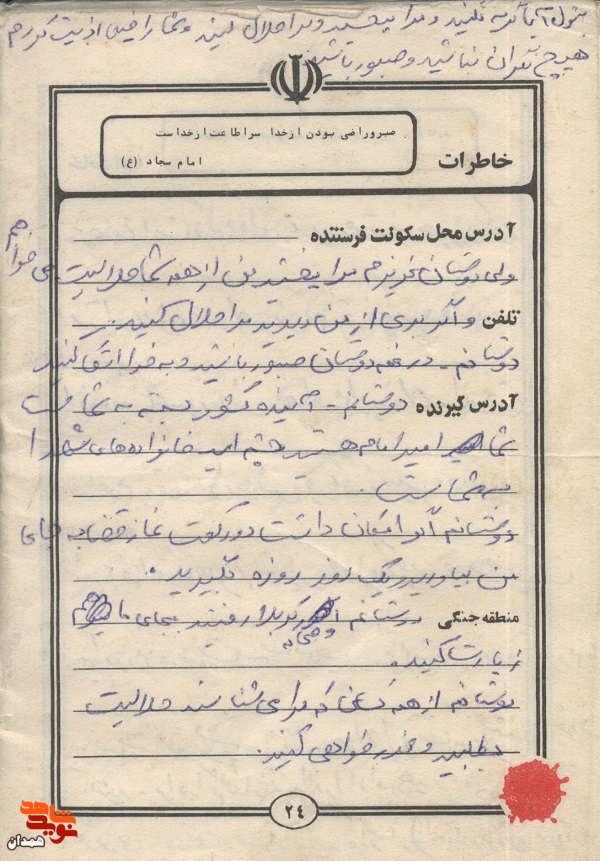 بتول آیا گریه نکنید و مرا ببخشید و مرا حلال کنید و شما را خیلی اذیت کردم
هیچ نگران نباشید و صبور باشید
صبر و راضی بودن از خدا سر اطاعت از خداست
امام سجاد (ع)
خاطرات
آدرس محل سکونت فرستنده
ولی دوستان عزیزم مرا ببخشید من از همه شما حلالیت می خواهم
تلفن و اگر بدی از من دیدید مرا حلال کنید.
دوستانم - در غم دوستان صبور باشید و به خدا اتکا کنید
آدرس گیرنده دوستانم - آینده کشور بسته به شما است
شما امید امام هستید چشم امید خانواده های شهدا
به شما است.
دوستانم اگر امکان داشت دو رکعت نماز قضا به جای
من بیاورید و یک روز روزه بگیرید.
منطقه جنگی دوستانم اگر کربلا رفتید بجای ما هم
زیارت کنید.
دوستانم از همه کسانی که مرا می شناسند حلالیت
بطلبید و عذر خواهی کنید.
۲۴
شاهد
نوید
همدان